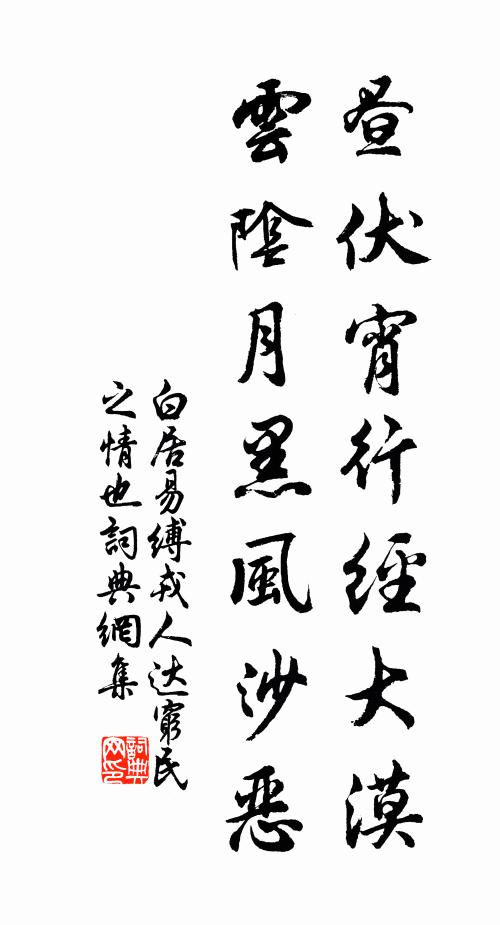 昼伏宵行經大漠
雲陰月黑風沙惡
白居易縛戎人达窮民
之情也詞典網集
詞典
网印